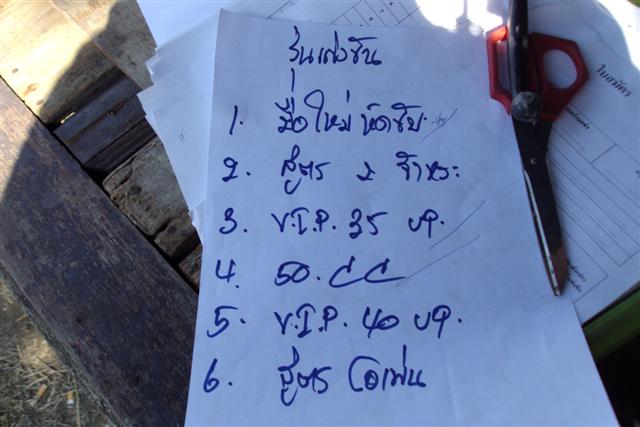 รุ่นแข่งขัน
1. มือใหม่ หัดขับ
2. สูตร 2 จังหวะ
3. V.I.P. 35 บช.
4. 50. CC
5. V.I.P. 40 บช.
6. สูตร โอเพ่น
ใบสมัคร